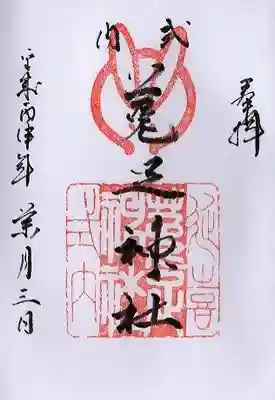 奉拝
式内
菟足神社
平成丙申年 葉月三日
延喜
菟足
神社
式内